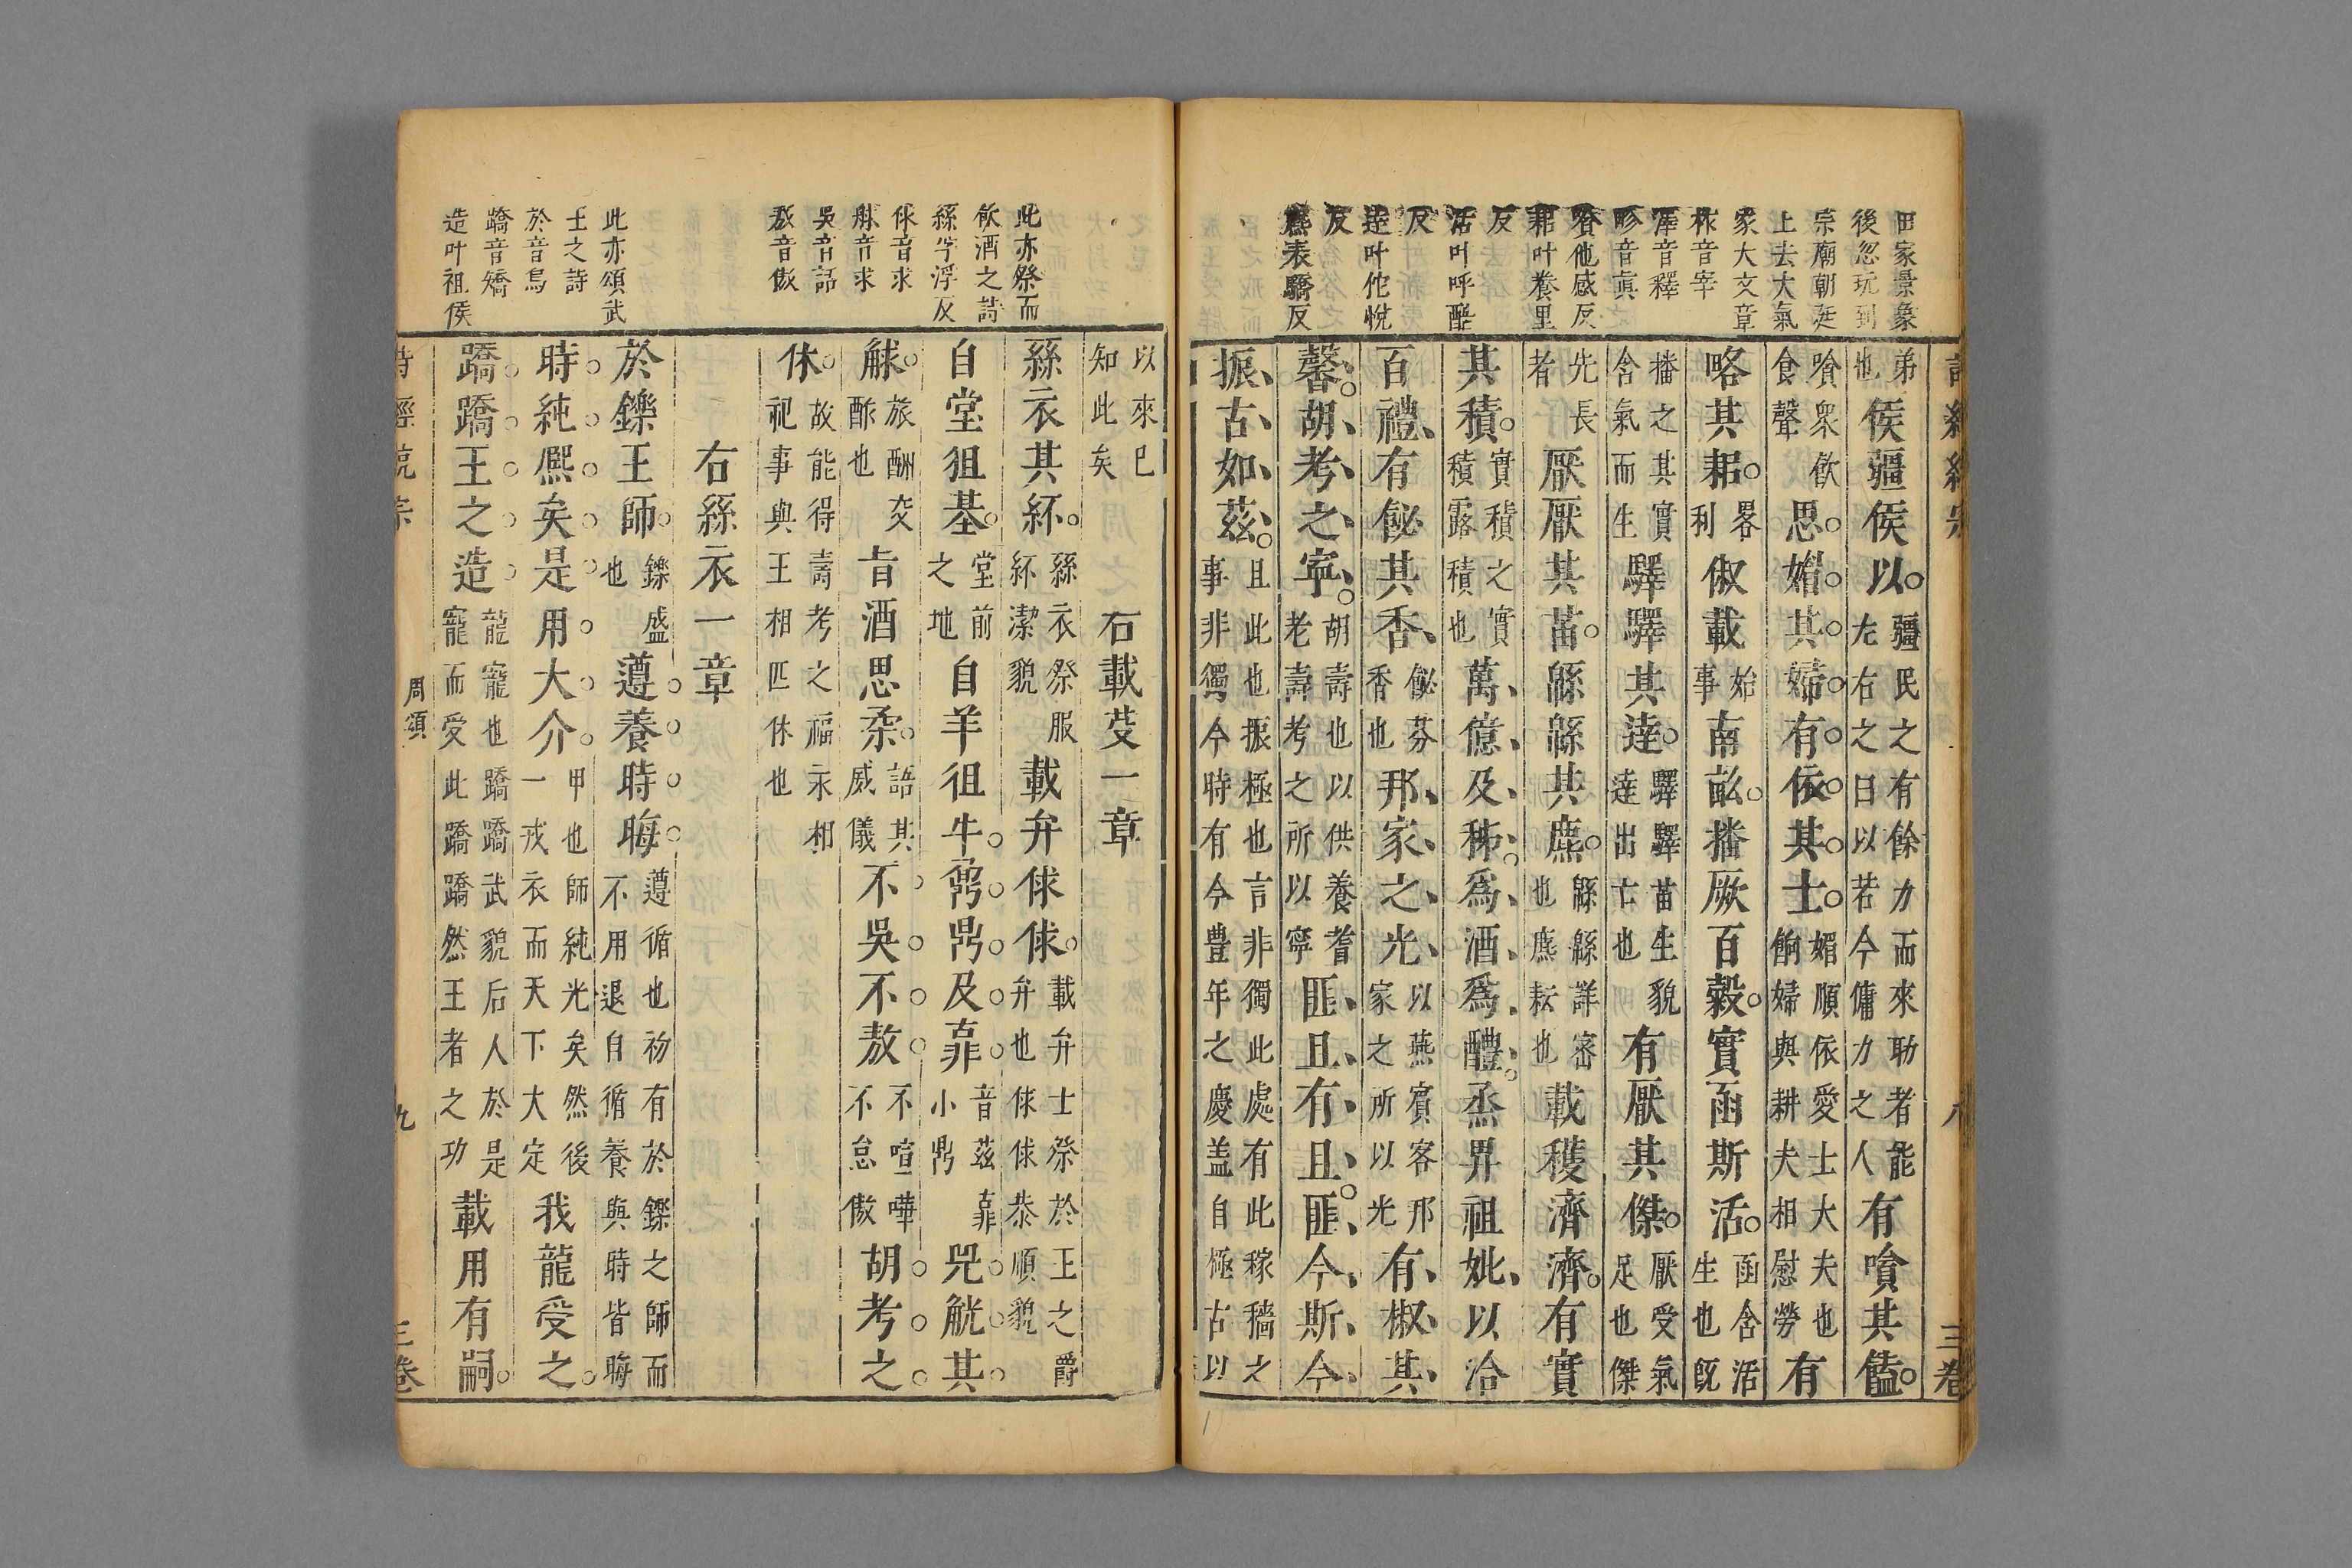 田家景象
後忽玩到
宗廟朝廷
上去大氣
象大文章
秣音宰
澤音釋
畛音真
嗿他感反
耜叶養里
反
活叶呼酷
反
達叶佗悅
反
麃表驕反
弟也侯疆侯以。疆民之有餘力而來助者能左右之曰以若今傭力之人有嗿其饁。
嗿衆飲食聲思。媚。其。婦。有。依。其。士。媚順依愛士大夫也餉婦與耕夫相慰勞有
略其耜。畧利俶載始事南畝。播厥百穀。實函斯活。函含活生也既
播之其實含氣而生驛驛其達。驛驛苗生貌達出亡也有厭其傑。厭受氣足也傑
先長者厭厭其苗。緜緜其麃。緜緜詳審也麃耘也載穫濟濟。有實
其積。實積之實積露積也萬、億、及、秭、。爲、酒、爲、醴、。烝畀祖妣、以洽
百禮、有飶其香、飶芬香也邦、家、之、光、以燕賓客邦家之所以光有、椒、其、
馨、。胡、考、之、寧、。胡壽也以供養耆老壽考之所以寧匪、且、有、且、。匪、今、斯、今、
振、古、如、茲、。且此也振極也言非獨此處有此稼穡之事非獨今時有今豊年之慶盖自極古以
八
三卷
此亦祭而
飲酒之詩
絲孚浮反
俅音求
觩音求
吳音話
敖音傲
此亦頌武
王之詩
於音烏
蹻音矯
造叶祖侯
以來已知此矣 右載芟一章
絲衣其紑。絲衣祭服紑潔貌載弁俅俅。載弁士祭於王之爵弁也俅俅恭順貌
自堂徂基。堂前之地自羊徂牛。鼐。鼎。及。鼒。音茲鼒小鼎兕。觥。其。
觩。旅酬交酢也旨酒思柔。語其威儀不。吳。不。敖。不喧嘩不怠傲胡。考。之。
休。故能得壽考之福永相祀事與王相匹休也
右絲衣一章
於鑠王師。鑠盛也遵。養。時。晦。遵循也初有於鑠之師而不用退自循養與時皆晦
時。純。熙。矣。是。用。大。介。甲也師純光矣然後一戎衣而天下大定我龍受之。
蹻。蹻。王。之。造。龍寵也蹻蹻武貌后人於是寵而受此蹻蹻然王者之功載用有嗣。
周頌
九
三卷